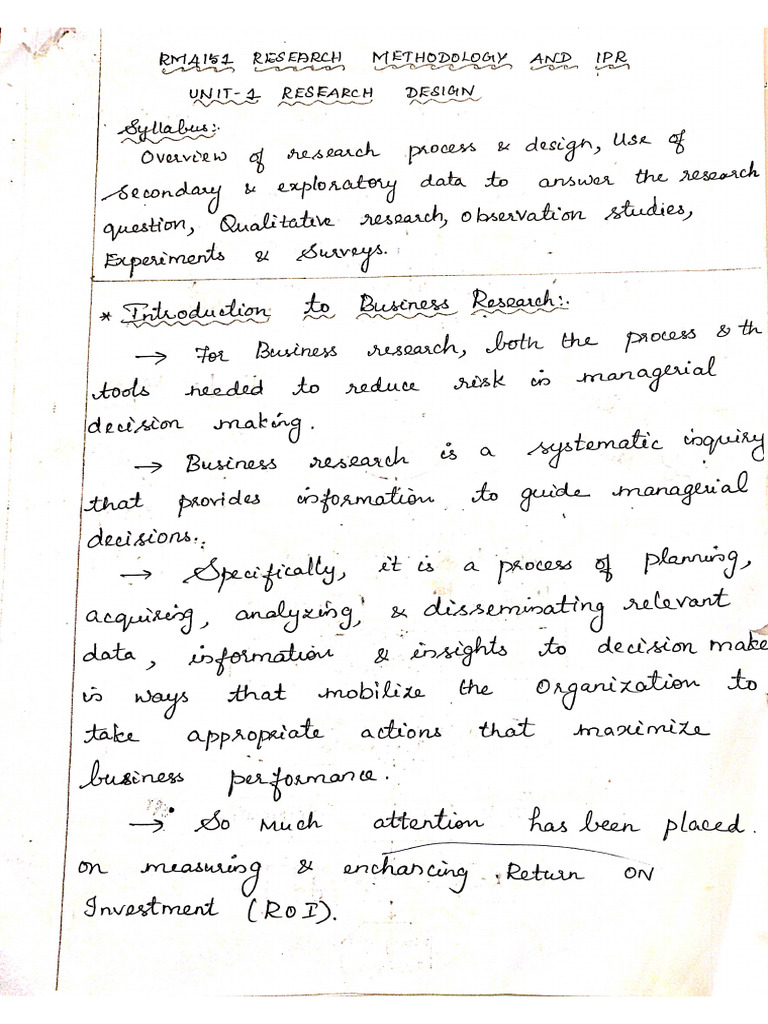 RM4151 RESEARCH METHODOLOGY AND IPR
UNIT-1 RESEARCH DESIGN
Syllabus:
Overview of research process & design, Use of
Secondary & exploratory data to answer the research
question, Qualitative research, Observation studies,
Experiments & Surveys.
* Introduction to Business Research:
→ For Business research, both the process & th
tools needed to reduce risk in managerial
decision making.
→ Business research is a systematic inquiry
that provides information to guide managerial
decisions.
→ Specifically, it is a process of planning,
acquiring, analyzing, & disseminating relevant
data, information & insights to decision make
in ways that mobilize the Organization to
take appropriate actions that maximize
business performance.
→ So Much attention has been placed.
on measuring & enchancing Return ON
Investment (ROI).